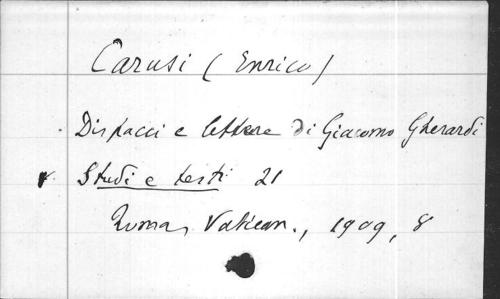 Carusi (Enrico)
Dispacci e lettere di Giacomo Gherardi
Studi e testi 21
Roma, Vatican., 1909, 8